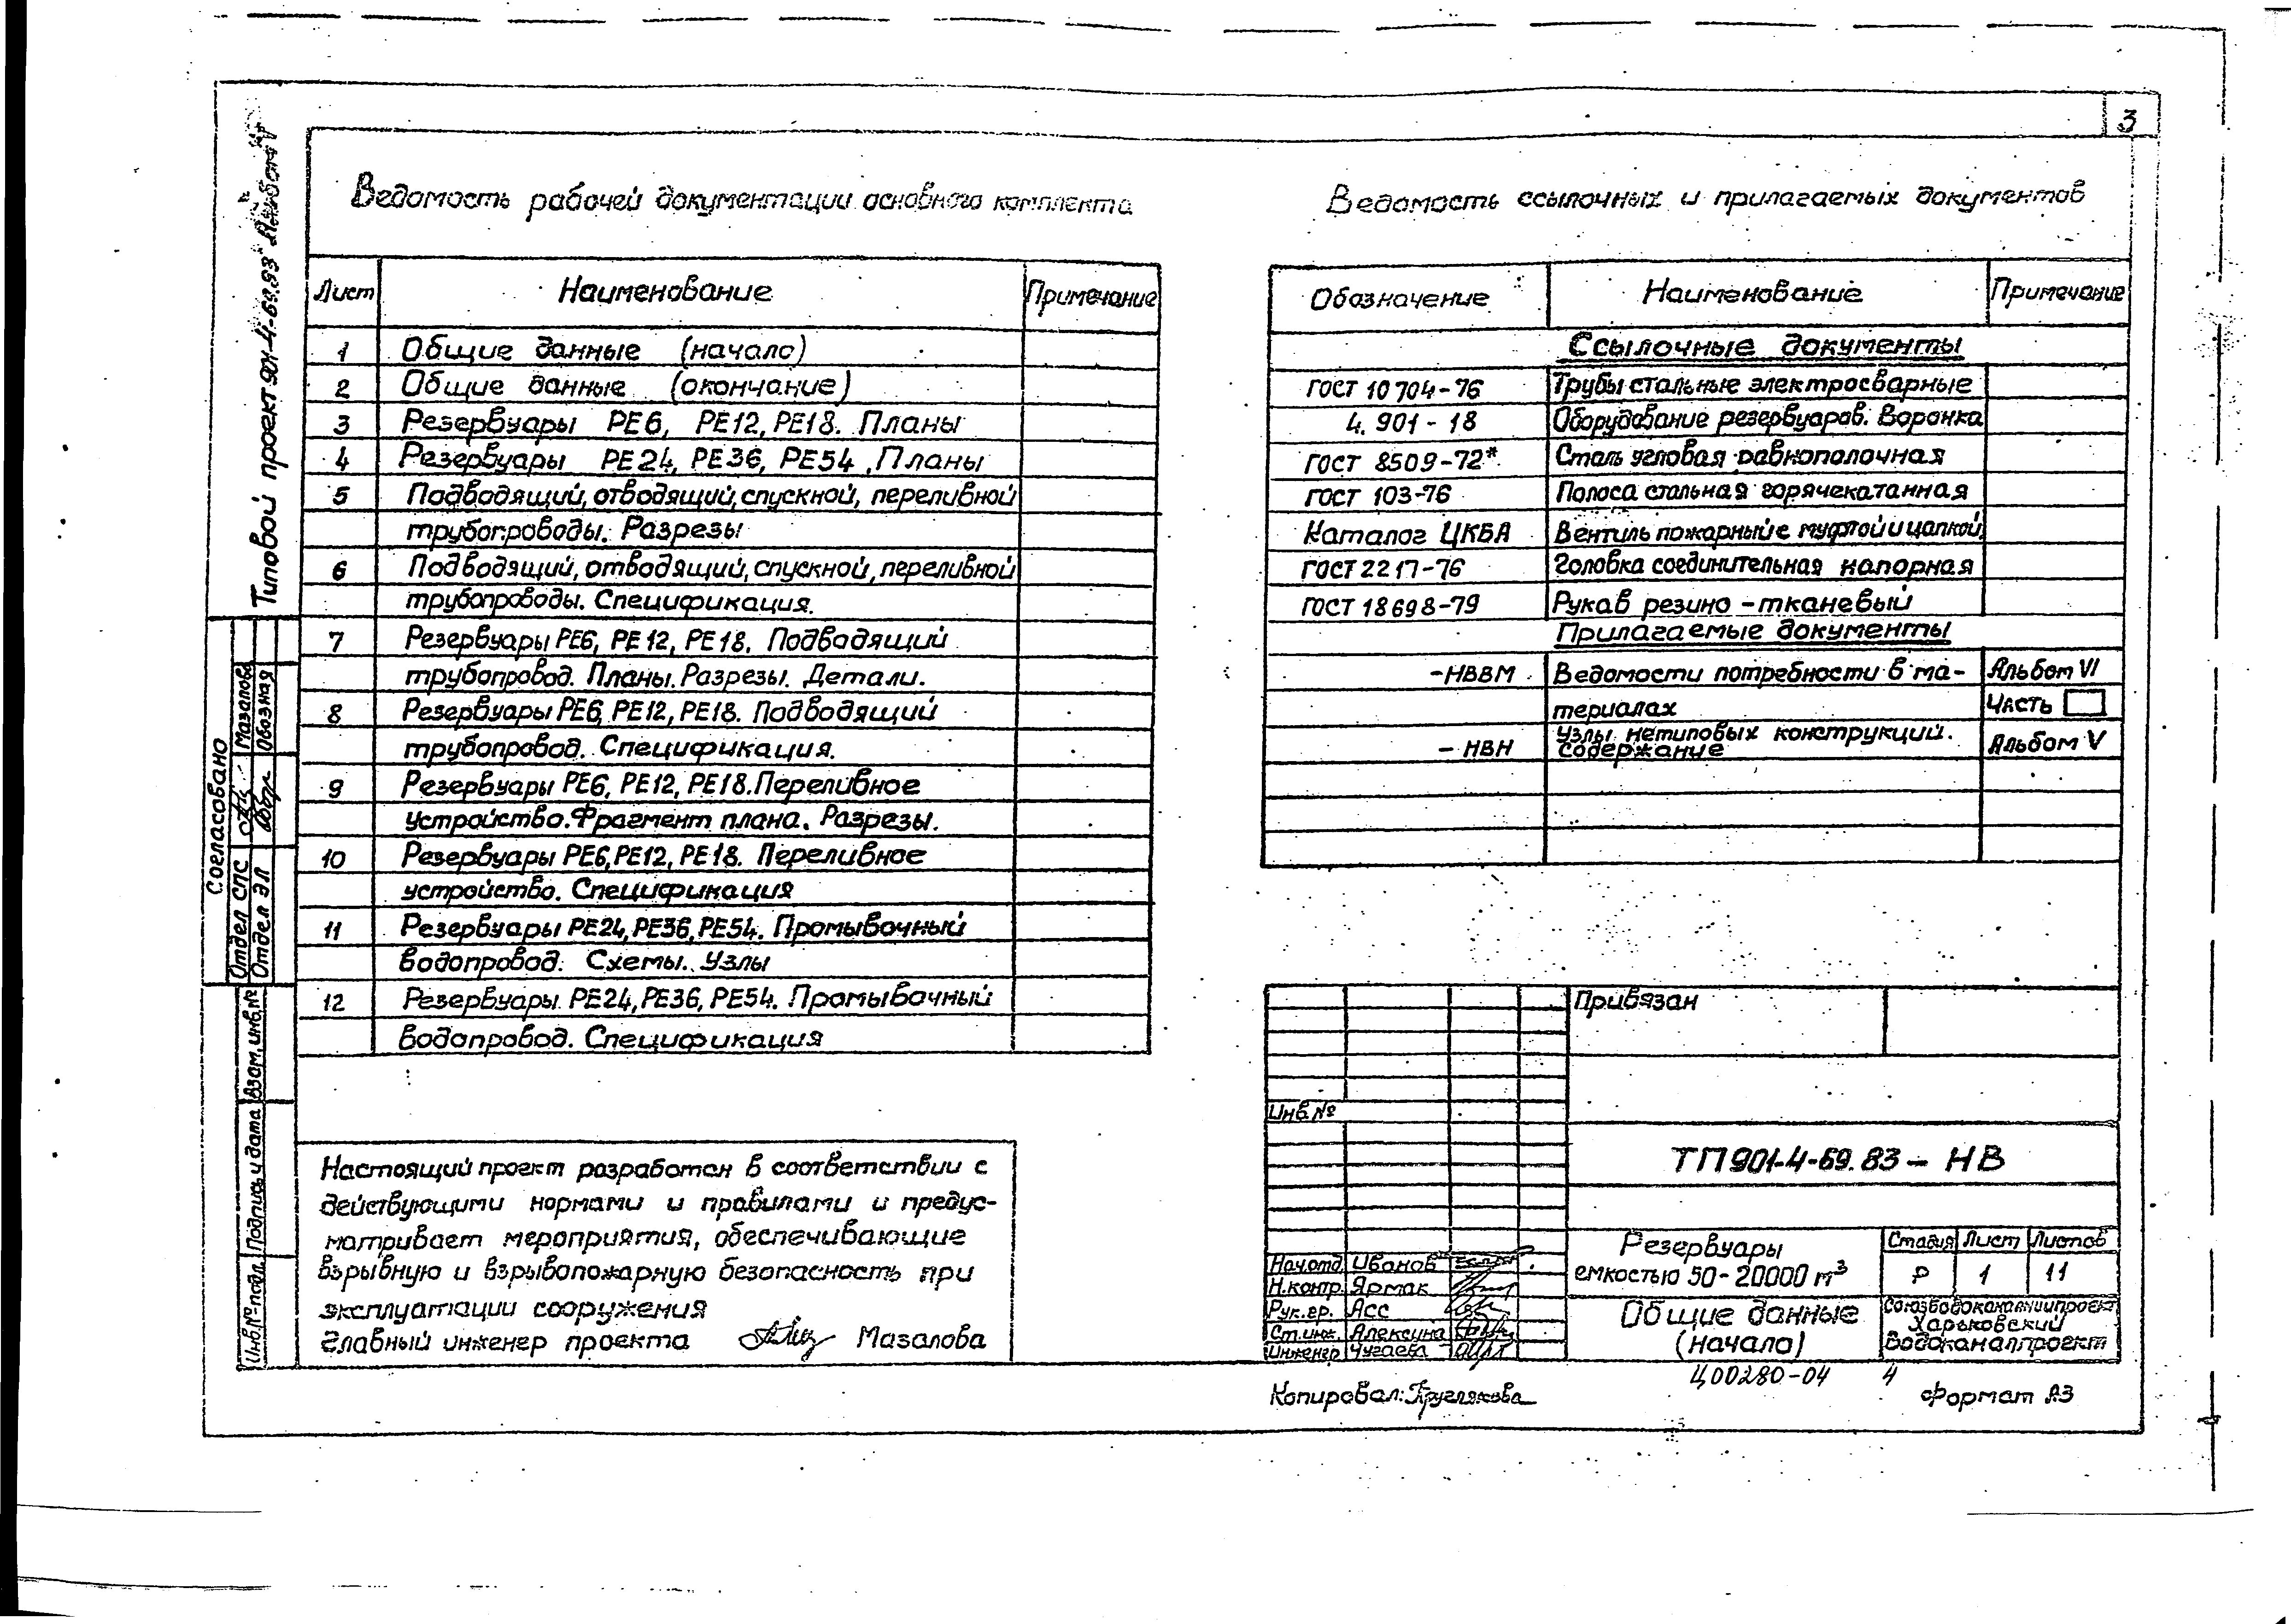 3
Типовой проект 901-4-69.83 Альбом
Ведомость рабочей документации основного комплекта
Лист Наименование Примечание
1 Общие данные (начало)
2 Общие данные (окончание)
3 Резервуары РЕ6, РЕ12, РЕ18. Планы
4 Резервуары РЕ24, РЕ36, РЕ54, Планы
5 Подводящий, отводящий, спускной, переливной
трубопроводы. Разрезы
6 Подводящий, отводящий, спускной, переливной
трубопроводы. Спецификация.
7 Резервуары РЕ6, РЕ12, РЕ18. Подводящий
трубопровод. Планы. Разрезы. Детали.
8 Резервуары РЕ6, РЕ12, РЕ18. Подводящий
трубопровод. Спецификация.
9 Резервуары РЕ6, РЕ12, РЕ18. Переливное
устройство. Фрагмент плана. Разрезы.
10 Резервуары РЕ6, РЕ12, РЕ18. Переливное
устройство. Спецификация
11 Резервуары РЕ24, РЕ36, РЕ54. Промывочный
водопровод. Схемы. Узлы
12 Резервуары РЕ24, РЕ36, РЕ54. Промывочный
водопровод. Спецификация
Настоящий проект разработан в соответствии с
действующими нормами и правилами и предус-
матривает мероприятия, обеспечивающие
взрывную и взрывопожарную безопасность при
эксплуатации сооружения
Главный инженер проекта Мазалова
Ведомость ссылочных и прилагаемых документов
Обозначение Наименование Примечание
Ссылочные документы
ГОСТ 10704-76 Трубы стальные электросварные
4.901-18 Оборудование резервуаров. Воронка
ГОСТ 8509-72* Сталь угловая равнополочная
ГОСТ 103-76 Полоса стальная горячекатанная
Каталог ЦКБА Вентиль пожарный с муфтой и цапкой,
ГОСТ 2217-76 Головка соединительная напорная
ГОСТ 18698-79 Рукав резино-тканевый
Прилагаемые документы
-НВВМ Ведомости потребности в ма- Альбом VI
териалах Часть
-НВН Узлы нетиповых конструкций. Альбом V
Содержание
Согласовано
Отдел СПС Мазалова
Отдел ЭЛ Обозная
Взам. инв. №
Подпись и дата
Инв. № подл.
Привязан
Инв. №
ТП 901-4-69.83 - НВ
Нач. отд. Иванов
Н. контр. Ярмак
Рук. гр. Асс
Ст. инж. Алексина
Инженер Чугаева
Резервуары
емкостью 50-20000 м³
Стадия Лист Листов
Р 1 11
Общие данные
(начало)
Союзводоканалниипроект
Харьковский
Водоканалпроект
Копировал: Круглякова
Ц00280-04 4
Формат А3